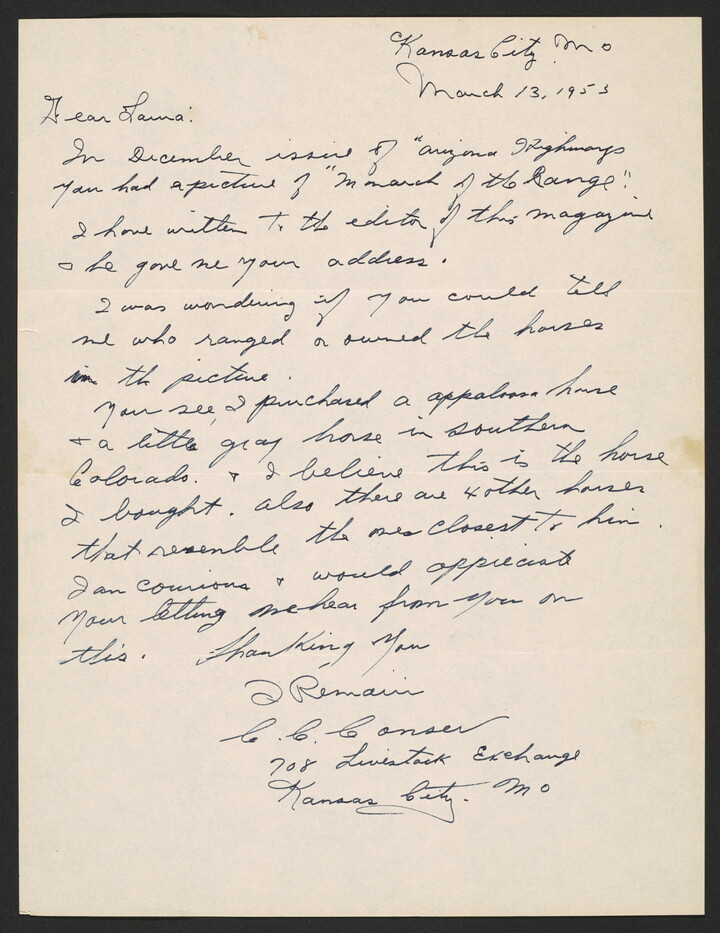 Kansas City, Mo
March 13, 1953
Dear Laura:
In December issue of "Arizona Highways
you had a picture of "Monarch of the Range".
I have written to the editor of this magazine
& he gave me your address.
I was wondering if you could tell
me who ranged or owned the horses
in the picture.
You see, I purchased a appaloosa horse
& a little gray horse in southern
Colorado. & I believe this is the horse
I bought. Also there are 4 other horses
that resemble the ones closest to him.
I am courious & would appieciate
your letting me hear from you on
this. Thanking You
I Remain
C. C. Conser
708 Livestock Exchange
Kansas City. Mo